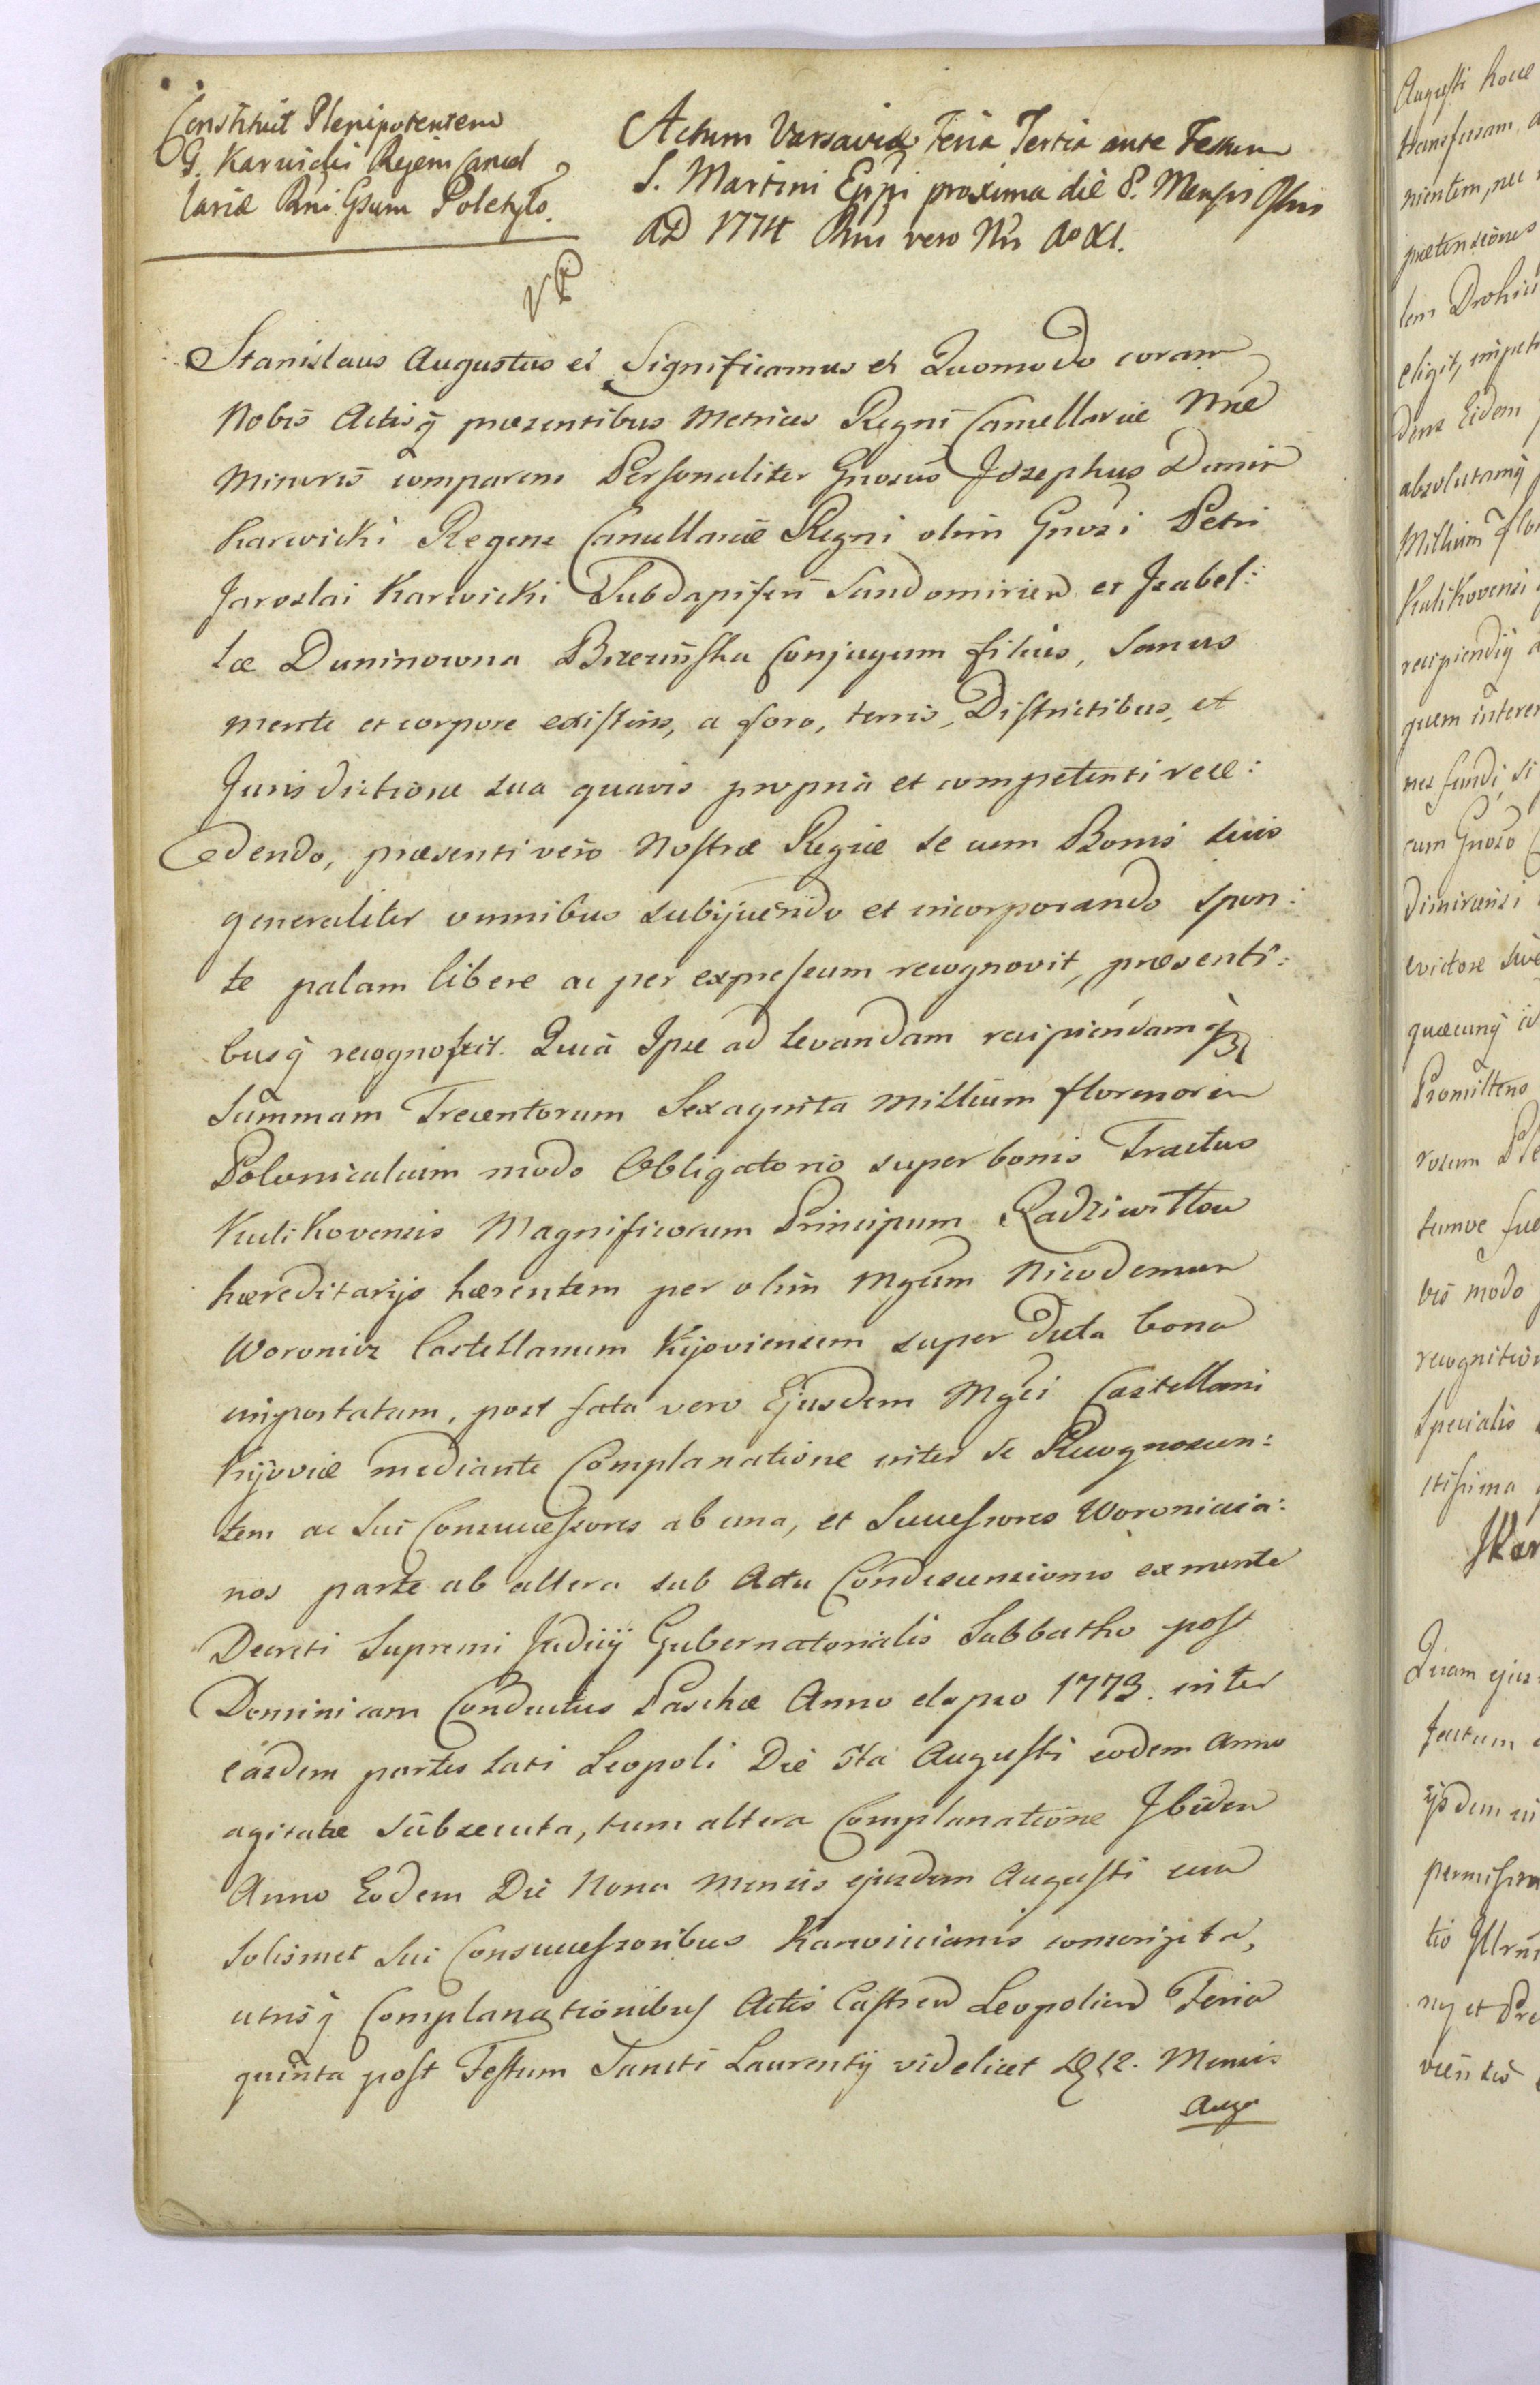 Constituit Plenipotentem
G. Karwicki Regens Cancel
lariæ Rni Gsum Poletyło.
Actum Varsaviæ Feria Tertia ante Festum
S. Martini Eppi proxima die 8. Mensis 9bris
AD 1774 Rni vero Nri Ao XI.
Stanislaus Augustus et Significamus et Quomodo coram
Nobis Actisq præsentibus Metrices Regni Cancellariæ Nræ
Minoris comparens Personaliter Gnosus Josephus Dunin
Karwicki Regens Cancellariæ Regni olim Gnosi Petri
Jaroslai Karwicki Subdapiferi Sandomirien et Isabel:
læ Duninowna Brzezińska Conjugum filius, sanus
mente et corpore existens, a foro, terris, Districtibus, et
Jurisdictione sua quavis propria et competenti rece:
dendo, præsenti vero Nostræ Regiæ se cum Bonis suis
generaliter omnibus subijciendo et incorporando spon:
te palam libere ac per expressum recognovit, præsenti:
busq recognoscit. Quia Ipse ad levandam recipiendamq
Summam Trecentorum Sexaginta Millium florenorum
Polonicalium modo Obligatorio super bonis Tractus
Kulikovensis Magnificorum Principum Radziwiłłow
hæreditarijs hærentem per olim Mgcum Nicodemum
Woronicz Castellanum Kijoviensem super Dicta bona
importatam, post fata vero Ejusdem Mgci Castellani
Kijoviæ mediante Complanatione inter se Recognoscen:
tem ac Sui Consuccessores ab una, et Successores Woronicia:
nos parte ab altera sub Actu Condescensionis ex mente
Decreti Supremi Judicij Gubernatorialis Sabbatho post
Dominicam Conductus Paschæ Anno elapso 1773. inter
easdem partes lati Leopoli Die 5ta Augusti eodem Anno
agitatæ subsecuta, tum altera Complanatione Ibidem
Anno Eodem Die Nona Mensis ejusdem Augusti cum
Solismet Sui Consuccessoribus Karwicianis conscripta,
utrisq Complanationibus Actis Castren Leopolien Feria
quinta post Festum Sancti Laurentij videlicet D 12. Mensis
Augu
Augusti
transfusam
nientem, nec
prætensiones
eligit,
dens Eidem
absolutamq
Millium flo
Kulikovensi
recipiendij
quem
nes fundi, si
cum Gnoso
evictore sive
quæcunq
Promittens
tumve
bis modo
recognition
Specialis
Quam ejus